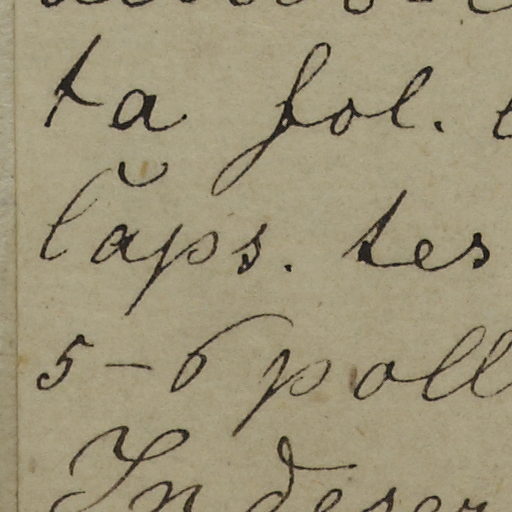 ta fol.
lăps. tes
5-6 poll
In deser